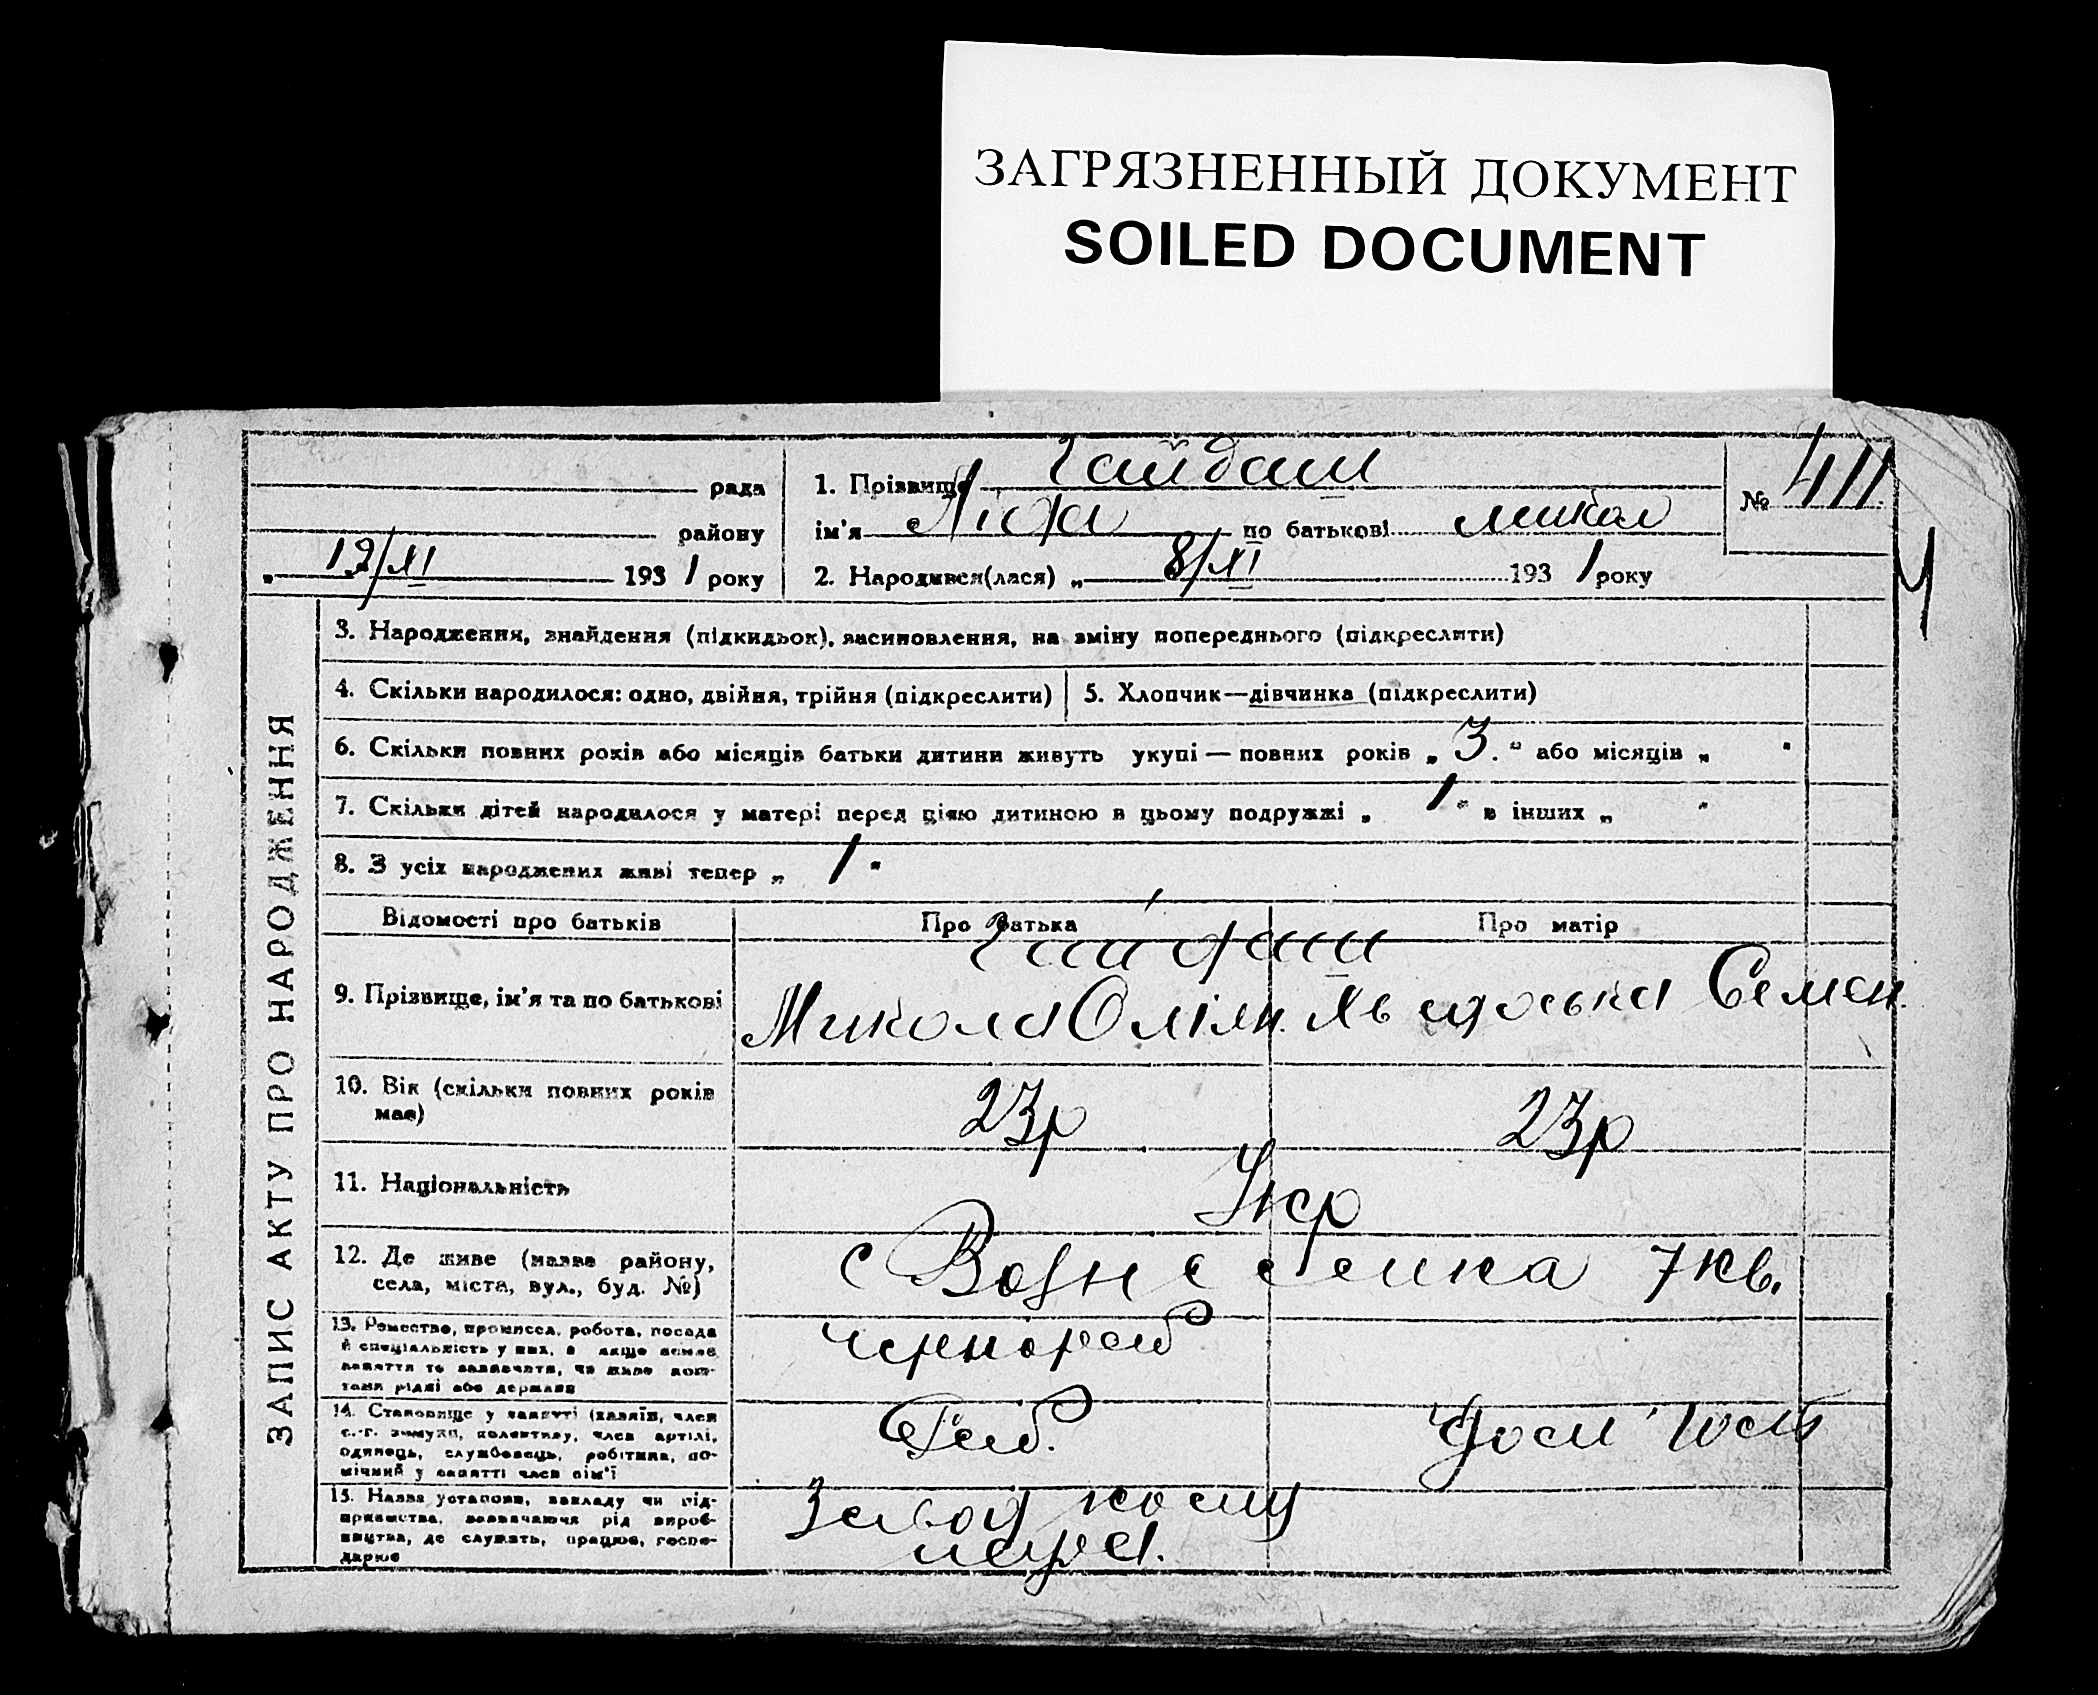 ЗАГРЯЗНЕННЫЙ ДОКУМЕНТ
SOILED DOCUMENT
рада
району
„ 12/XI 1931 року
1. Прізвище Гайдаш
ім'я Ліда по батькові Микол
2. Народився(лася) „ 8/XI 1931 року
№ 411
ЗАПИС АКТУ ПРО НАРОДЖЕННЯ
3. Народження, знайдення (підкидьок), засиновлення, на зміну попереднього (підкреслити)
4. Скільки народилося: одно, двійня, трійня (підкреслити)
5. Хлопчик—дівчинка (підкреслити)
6. Скільки повних років або місяців батьки дитини живуть укупі — повних років „ 3. “ або місяців „ “
7. Скільки дітей народилося у матері перед цією дитиною в цьому подружжі „ 1 “ в інших „ “
8. З усіх народжених живі тепер „ 1 “
Відомості про батьків Про батька Про матір
Гайдаш
9. Прізвище, ім'я та по батькові Микола Омілян. Явдоська Семен.
10. Вік (скільки повних років має) 23р 23р
11. Національність Укр
12. Де живе (назва району, села, міста, вул., буд. №) с Вознесенка 7 кв.
13. Ремество, промисел, робота, посада й спеціяльність у них, а якщо немає заняття то зазначити, чи живе коштами рідні або держави
чернораб
14. Становище у занятті (хазяїн, член с.-г. комуни, колективу, член артілі, одинець, службовець, робітник, помічний у занятті член сім'ї
Раб.
Дом госп
15. Назва установи, закладу чи підприємства, зазначаючи рід виробництва, де служить, працює, господарює
Завод